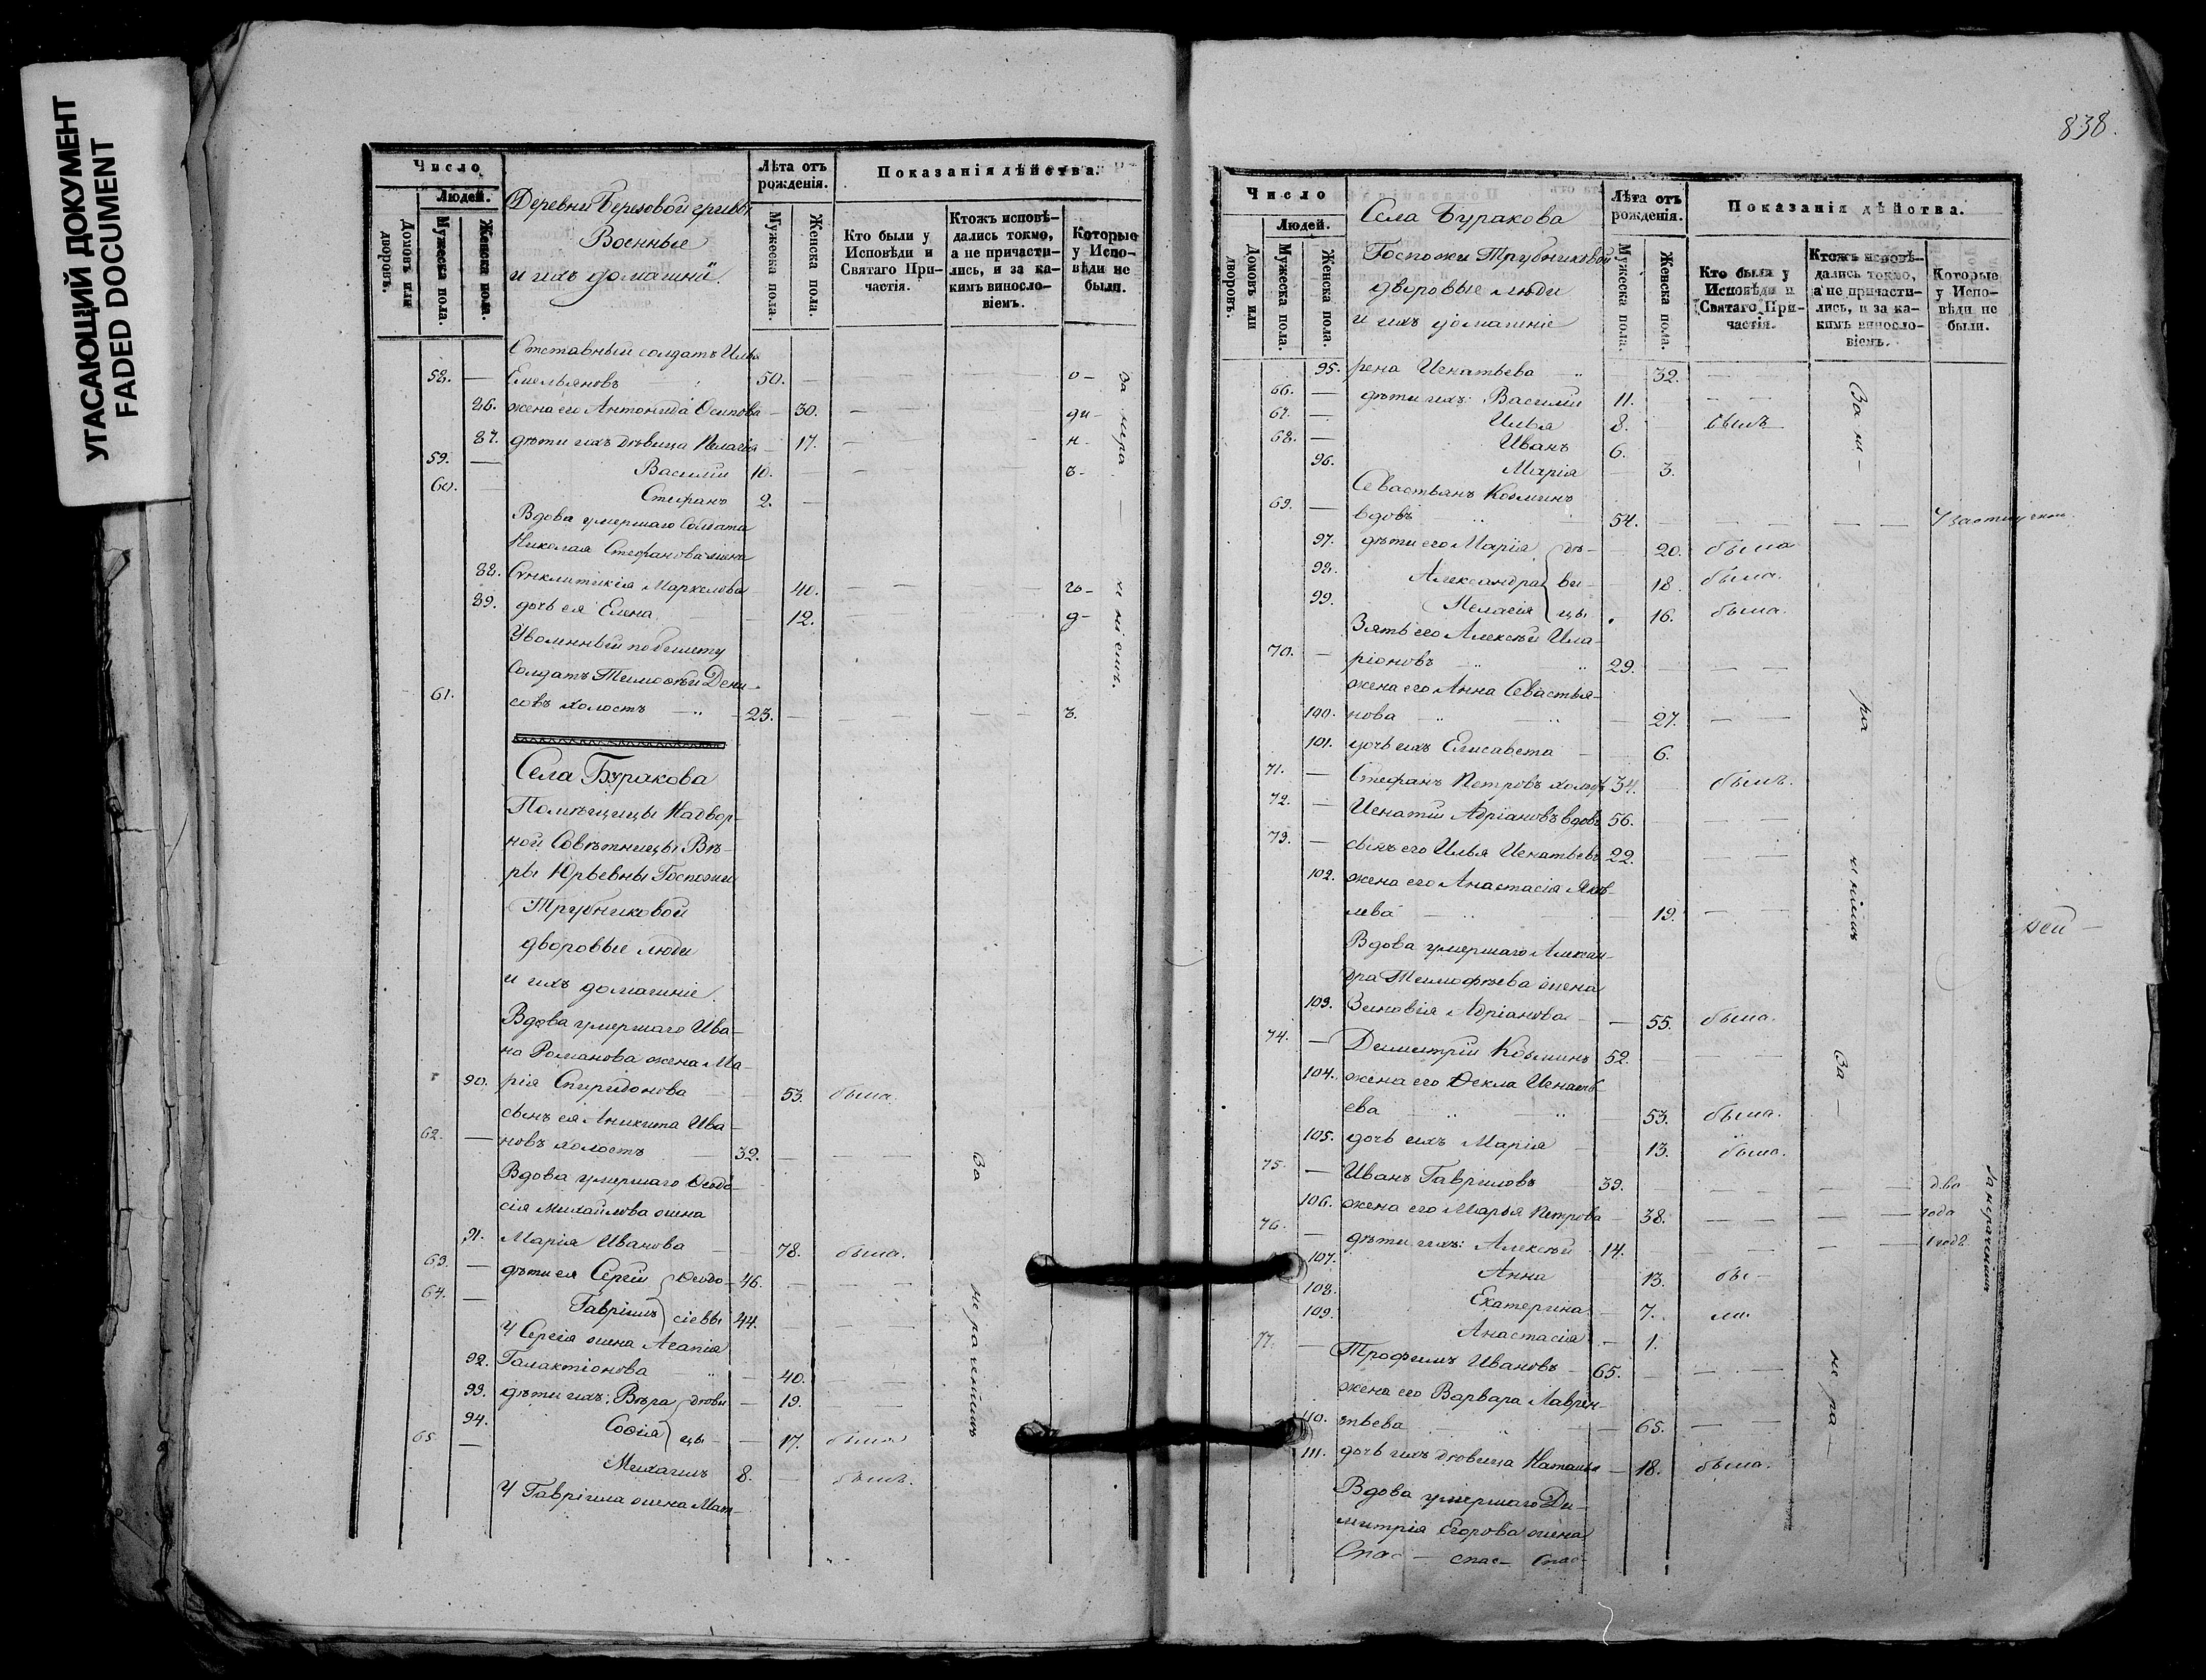 УГАСАЮЩИЙ ДОКУМЕНТ
FADED DOCUMENT
Число
Людей.
Домовъ или дворовъ.
Мужеска пола.
Женска пола.
Деревни Березовой гривы
Военные
и ихъ домашнiи.
Лѣта отъ рожденія.
Мужеска пола.
Женска пола.
Показанія дѣйства.
Кто были у Исповѣди и Святаго Причастія.
Ктожъ исповѣдались токмо, а не причастились, и за какимъ винословіемъ.
Которые у Исповѣди не были.
Отставный солдатъ Илья
58. — Емельяновъ 50. — о-
86. жена его Антонида Осипова — 30. — —
87. дѣти ихъ дѣвица Пелагія — 17. — н-
59. — Василій 10. — — ъ-
60. — Стефанъ 2. —
Вдова умершаго Солдата
Николая Стефанова жена
88. Сѵнклитикія Маркелова 40. — — го-
89. дочь ея Елена — 12. д-
Уволенный по билету
Солдатъ Тимоѳѣй Дени-
61. совъ холостъ — 23. — — — — ъ.
За нера — ченіемъ.
Села Буракова
Помѣщицы Надвор-
ной Совѣтницы Вѣ-
ры Юрьевны Госпожи
Трубниковой
дворовые люди
и ихъ домашніе.
Вдова умершаго Ива-
на Романова жена Ма-
90. рія Спиридонова — 53. была.
сынъ ея Аникита Ива-
62. — новъ холостъ — 32. — — —
Вдова умершаго Ѳеодо-
сія Михайлова жена
91. Марія Иванова — 78. была.
63. — дѣти ея Сергій Ѳеодо- 46. — — —
64. — Гавріилъ сіевы 44. — — —
У Сергія жена Агапія
92. Галактіонова — 40. — —
93. дѣти ихъ: Вѣра дѣви — 19. — —
94. Софія цы — 17. была
65 — Михаилъ 8. — былъ.
У Гавріила жена Мат-
За нераченіемъ
838.
Число
Людей.
Домовъ или дворовъ.
Мужеска пола.
Женска пола.
Села Буракова
Госпожи Трубниковой
дворовые люди
и ихъ домашніе
Лѣта отъ рожденія.
Мужеска пола.
Женска пола.
Показанія дѣйства.
Кто были у Исповѣди и Святаго Причастія.
Ктожъ исповѣдались токмо, а не причастились, и за какимъ винословіемъ.
Которые у Исповѣди не были.
95. рена Игнатьева 32. — —
66. — дѣти ихъ: Василій 11. — —
67. — Илья 8. былъ
68. — Иванъ 6.
96. Марія — 3.
Севастьянъ Козминъ
69. — вдовъ 54. — — — — —
97. дѣти его Марія дѣ- — 20. была
98. Александра ви- — 18. была.
99. Пелагія цы 16. была.
Зять его Алексѣй Ила-
70. — ріоновъ 29. — — —
жена его Анна Севастья-
100. нова — 27. — —
101. дочь ихъ Елисавета — 6.
71. — Стефанъ Петровъ холостъ 34. былъ.
72. — Игнатій Адріановъ вдовъ 56. — — —
73. — сынъ его Илья Игнатьевъ 22. — — —
102. жена его Анастасія Яков-
лева — — 19. — —
Вдова умершаго Алексан-
дра Тимофѣева жена
103. Зиновія Адріанова — 55. была.
74. — Димитрій Козминъ 52. — — —
104. жена его Ѳекла Игнать-
ева — 53. была.
105. дочь ихъ Марія — 13. была.
75. — Иванъ Гавриловъ — 39. — — — — — два
106. жена его Марья Петрова — 38. — — — — — года
76. — дѣти ихъ: Алексѣй 14. — — — — — 1 годъ
107. Анна — 13. бы-
108. Екатерина — 7. ли.
109. Анастасія — 1.
77. — Трофимъ Ивановъ — 65. — — —
жена его Варвара Лаврен-
110. тьева — 65. — —
111. дочь ихъ дѣвица Наталья — 18. была.
Вдова умершаго Ди-
митрія Егорова жена
Спас — спас — спас-
За не — ра ченіемъ
За — не ра —
За нераченіемъ